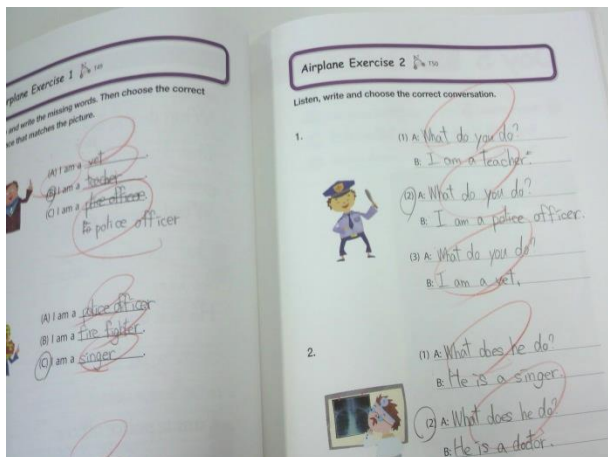 rplane Exercise 1 T49
and write the missing words. Then choose the correct
ce that matches the picture.
(A) I am a vet.
(B) I am a teacher.
(C) I am a
police officer
(A) I am a police officer
(B) I am a fire fighter.
(C) I am a singer.
Airplane Exercise 2 T50
Listen, write and choose the correct conversation.
1.
(1) A: What do you do?
B: I am a teacher.
(2) A: What do you do?
B: I am a police officer.
(3) A: What do you do?
B: I am a vet.
2.
(1) A: What does he do?
B: He is a singer.
(2) A: What does he do?
B: He is a doctor.